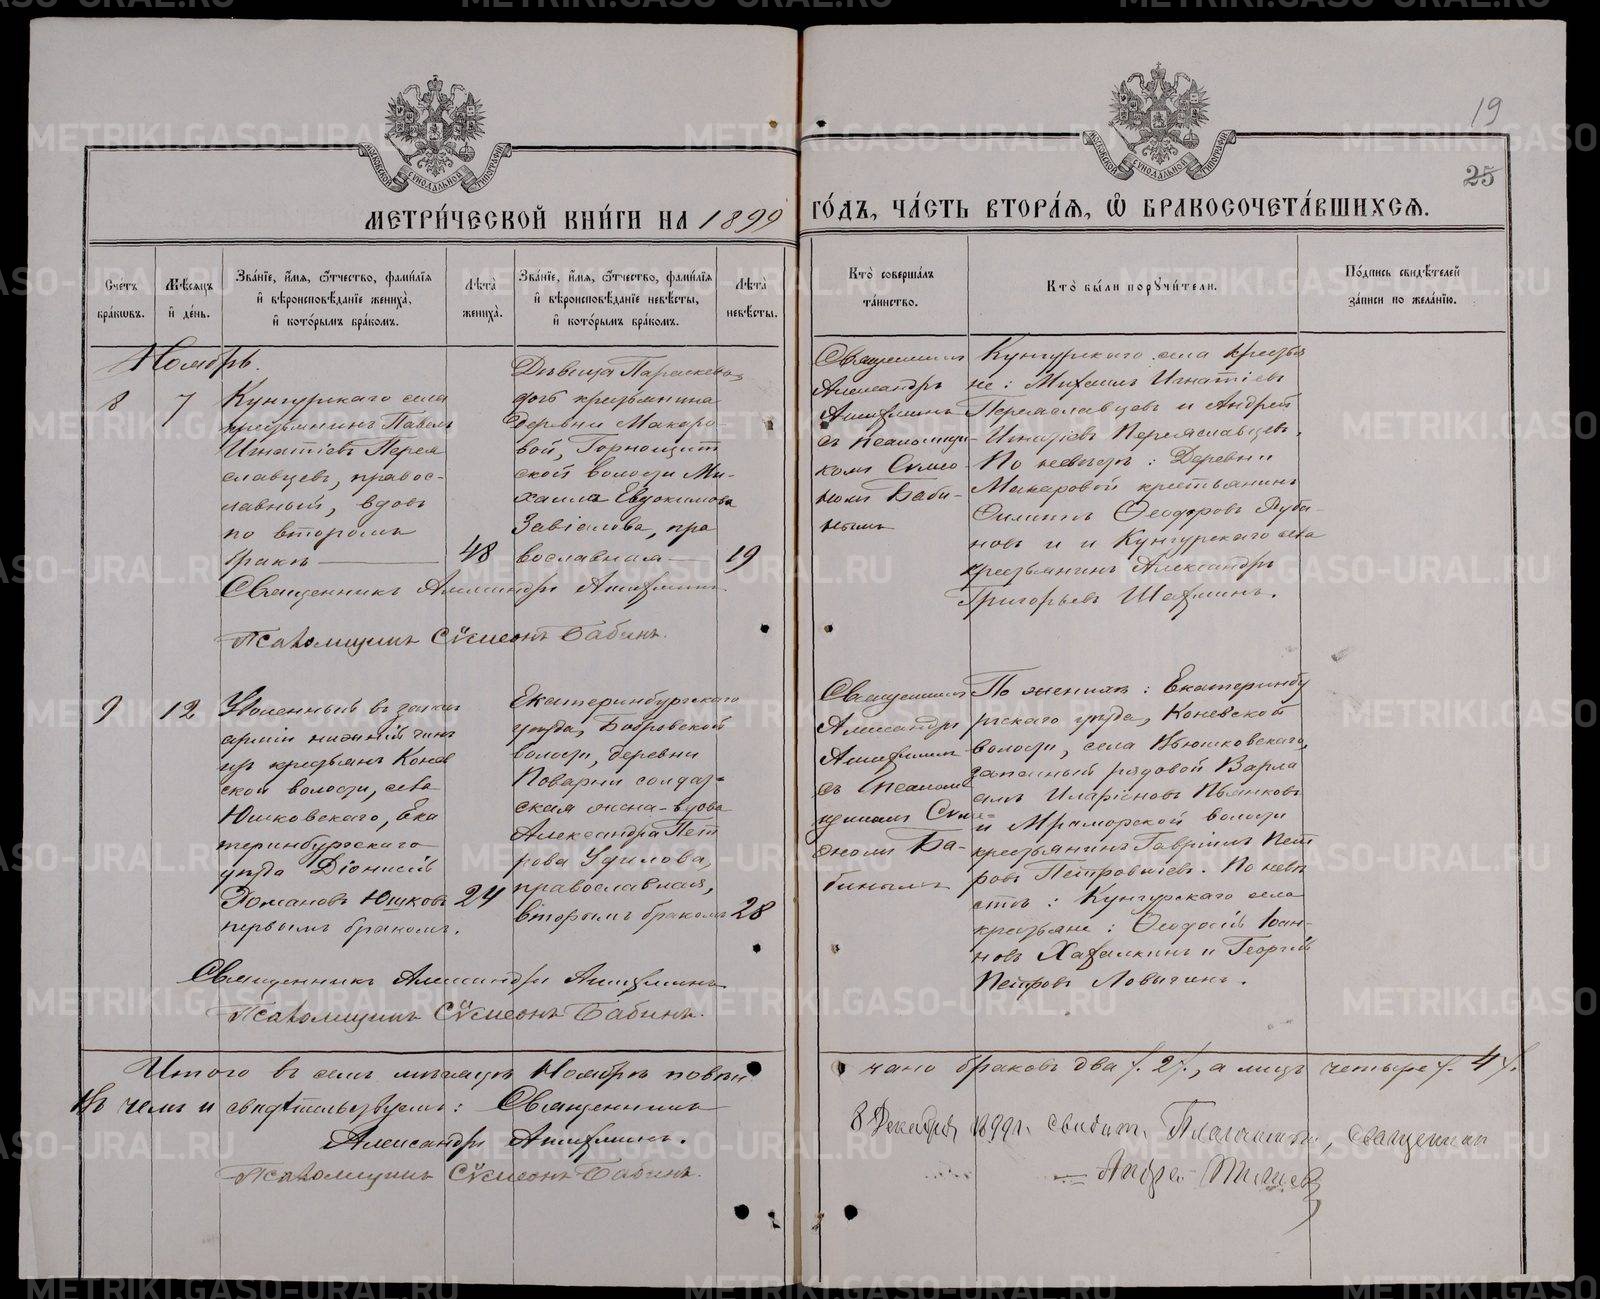 19
25
МЕТРИ́ЧЕСКОЙ КНИ́ГИ НА 1899 ГО́ДЪ, ЧА́СТЬ ВТОРА́Я, Ѿ БРАКОСОЧЕТА́ВШИХСЯ.
Сче́тъ бра́кѡвъ.
Мѣ́сяцъ и҆ де́нь.
Зва́нїе, и҆́мя, ѻ҆́тчество, фами́лїя
и҆ вѣроисповѣ́данїе жениха̀,
и҆ кото́рымъ бра́комъ.
Лѣта̀ жениха̀.
Зва́нїе, и҆́мя, ѻ҆́тчество, фами́лїя
и҆ вѣроисповѣ́данїе невѣ́сты,
и҆ кото́рымъ бра́комъ.
Лѣта̀ невѣ́сты.
Кто̀ соверша́лъ
та́инство.
Кто̀ бы́ли порꙋчи́тели.
По́дпись свидѣ́телей
за́писи по жела́нїю.
Ноябрь.
8
7
Кунгурскаго села
крестьянинъ Павелъ
Игнатіевъ Перея
славцевъ, правос-
лавный, вдовъ
по второмъ
бракѣ
48
Дѣвица Параскева,
дочь крестьянина
деревни Макаро-
вой, Горнощит
ской волости Ми-
хаила Евдокимова
Завіалова, пра
вославная
19
Священникъ
Александръ
съ псаломщи
комъ Симео
номъ Баби-
нымъ
Кунгурскаго села крестья
не: Михаилъ Игнатіевъ
Переяславцевъ и Андрей
Игнатіевъ Переяславцевъ.
По невѣстѣ: Деревни
Макаровой крестьянинъ
Филиппъ Ѳеодоровъ Руба-
новъ и и Кунгурскаго села
крестьянинъ Александръ
Григорьевъ
Священникъ Александръ
Псаломщикъ Сѵмеонъ Бабинъ.
9
12
Уволенный въ запасъ
арміи нижній чинъ
изъ крестьянъ Конев
ской волости, села
Юшковскаго, Ека
теринбургскаго
уѣзда Діонисій
Романовъ Юшковъ
первымъ бракомъ.
24
Екатеринбургскаго
уѣзда, Бобровской
волости, деревни
Поварни солдат-
ская жена-вдова
Александра Пет
рова Удилова,
православная,
вторымъ бракомъ
28
Священникъ
Александръ
съ Псалом
щикомъ Симе-
ономъ Ба-
бинымъ
По женихѣ: Екатеринбу
ргскаго уѣзда, Коневской
волости, села Юшковскаго,
запасный рядовой Варла
амъ Иларіоновъ Пьянковъ
и Мраморской волости
крестьянинъ Гавріилъ Пет
ровъ Петровичевъ. По невѣ
стѣ: Кунгурскаго села
крестьяне: Ѳеодосій Іоан-
новъ и Георгій
Петровъ Ловыгинъ.
Священникъ Александръ
Псаломщикъ Сѵмеонъ Бабинъ.
Итого въ семъ мѣсяцѣ Ноябрѣ повѣн чано браковъ два /. 2 /., а лицъ четыре /. 4 /.
Въ чемъ и свидѣтельствуемъ: Священникъ
Александръ
Псаломщикъ Сѵмеонъ Бабинъ.
8 Декабря 1899 г. священникъ
Андрей